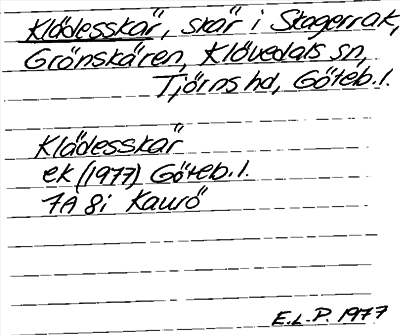 Klädesskär, skär i Skagerrak,
Grönskären, Klövedals sn,
Tjörns hd, Göteb. l.
Klädesskär
ek (1977) Göteb. l.
7A 8i Kaurö
E. L. P. 1977